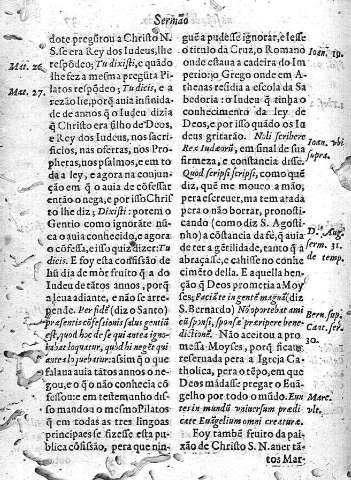 Sermão
dote pregũtou a Christo N.
S. se era Rey dos Iudeus, lhe
respõdeo; Tu dixisti, e quãdo
lhe fez a mesma pregũta Pi-
latos respõdeo; Tu dicis, e a
rezão he, porq̃ auia infinida-
de de annos q̃ o Iudeu dizia
que Christo era filho de Deos,
e Rey dos Iudeus, nos sacri-
ficios, nas ofertas, nos Pro-
phetas, nos psalmos, e em to
da a ley, e agora na conjun-
ção em q̃ o auia de cõfessar
entaõ o nega, e por isso Chri-
sto lhe diz; Dixisti: porem o
Gentio como ignorãte nũ-
ca o auia conhecido, e agora
o cõfessa, e isso quiz dizer: Tu
dicis. E foy esta cõfissão de
hũ dia de mòr fruito q̃ a do
Iudeu de tãtos annos, por q̃
a leua adiante, e não se arre-
pende. Per fidẽ (diz o Santo)
præsentis cõfessionis salus gentiũ
est, quod hoc de se qui antea igno-
rabat loquatur, quod hi neget qui
antea lo jactabatur: assim q̃ o que
falaua auia tãtos annos o ne-
gou, e o q̃ o não conhecia cõ-
fessou: e em testemunho dis-
so mandou o mesmo Pilatos
q̃ em todas as tres lingoas
principaes se fizesse esta pu-
blica cõfissaõ, pera que nin-
guẽ a pudesse ignorar, e lesse
o titulo da Cruz, o Romano
onde estaua a cadeira do Im-
perio: o Grego onde em A-
thenas residia a escola da Sa-
bedoria: o Iudeu q̃ tinha o
conhecimento da ley de
Deos, e por isso quãdo os Iu-
deus gritarão. Noli scribere
Rex Iudæorũ, em sinal de sua
firmeza, e constancia disse.
Quod scripsi scripsi, como quẽ
diz, quẽ me mouco a mão,
pera escreuer, ma tem atada
pera o nõ borrar, pronosti-
cando (com o diz S. Agosti-
nho) a cõstancia da fè, q̃ auia
de ter a gẽtilidade, tanto q̃ a
abraçasse, e cahisse no conhe
cimẽto della. E aquella ben-
ção q̃ Deos prometia a Moy
ses; Faciã te in gentẽ magnã (diz
S. Bernardo) Nõ oportebat ami
cũ sponsi, sponsæ præripere bene-
dictionẽ. Não aceitou a pro-
messa Moyses, porq̃ ficaua
reseruada pera a Igreja Ca-
tholica, pera o tẽpo, em que
Deos mãdasse prègar o Euã-
gelho por todo o mũdo. Eun-
tes in mundũ vniuersum prædi-
cate Euãgelium omni creaturæ.
Foy tambẽ fruito da pai-
xão de Christo S. N. auer tã-
tos Mar-
Mat. 26.
Mat. 27.
Ioan. 19.
Ioan. vbi
supra.
D. Aug.
serm. 31.
de temp.
Bern. sup.
Cant. ser.
30.
Marc.
vlt.